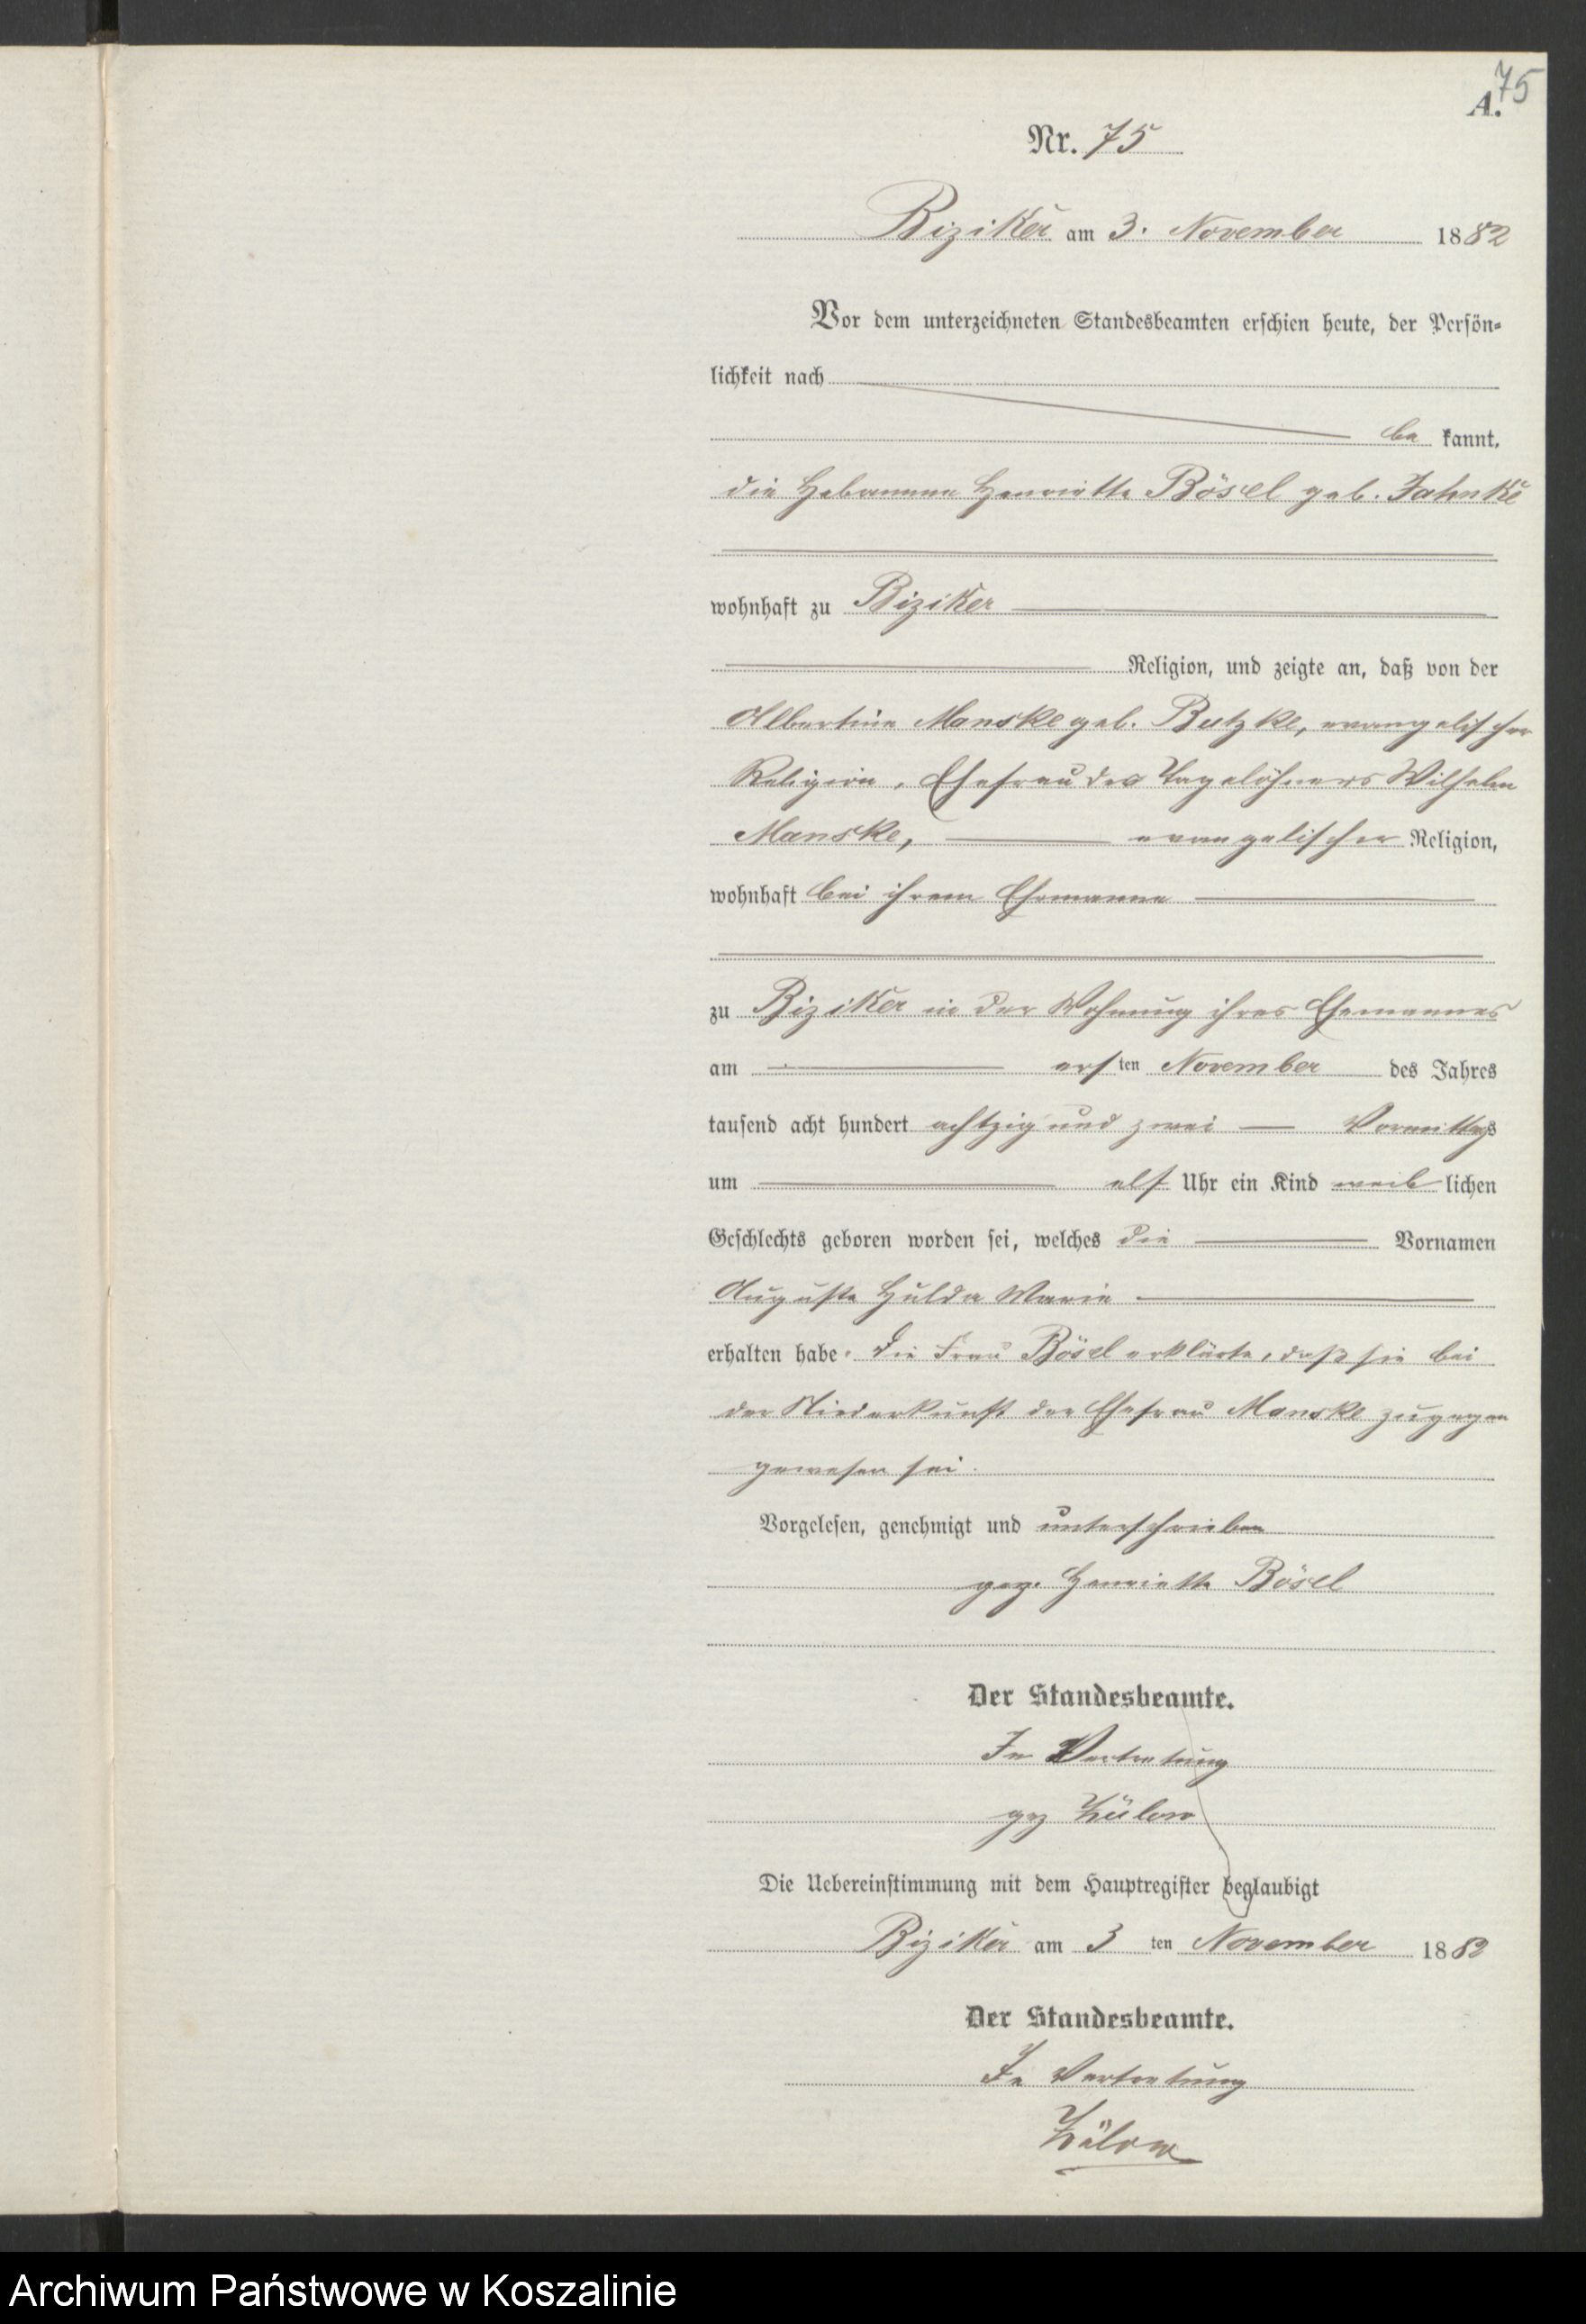 75
A.
Nr. 75
Biziker am 3. November 1882
Vor dem unterzeichneten Standesbeamten erschien heute, der Persön-
lichkeit nach
be kannt,
die Hebamme Henriette Bösel geb. Jahnke
wohnhaft zu Biziker
Religion, und zeigte an, daß von der
Albertine Manske geb. Butzke, evangelischer
Religion, Ehefrau des Tagelöhners Wilhelm
Manske, evangelischer Religion,
wohnhaft bei ihrem Ehemanne
zu Biziker in der Wohnung ihres Ehemannes
am ersten November des Jahres
tausend acht hundert achtzig und zwei Vormittags
um elf Uhr ein Kind weiblichen
Geschlechts geboren worden sei, welches die Vornamen
Auguste Hulda Marie
erhalten habe. Die Frau Bösel erklärte, daß sie bei
der Niederkunft der Ehefrau Manske zugegen
gewesen sei.
Vorgelesen, genehmigt und unterschrieben
gez. Henriette Bösel
Der Standesbeamte.
In Vertretung
gez Zülow
Die Uebereinstimmung mit dem Hauptregister beglaubigt
Biziker am 3 ten November 1882
Der Standesbeamte.
In Vertretung
Zülow
Archiwum Państwowe w Koszalinie